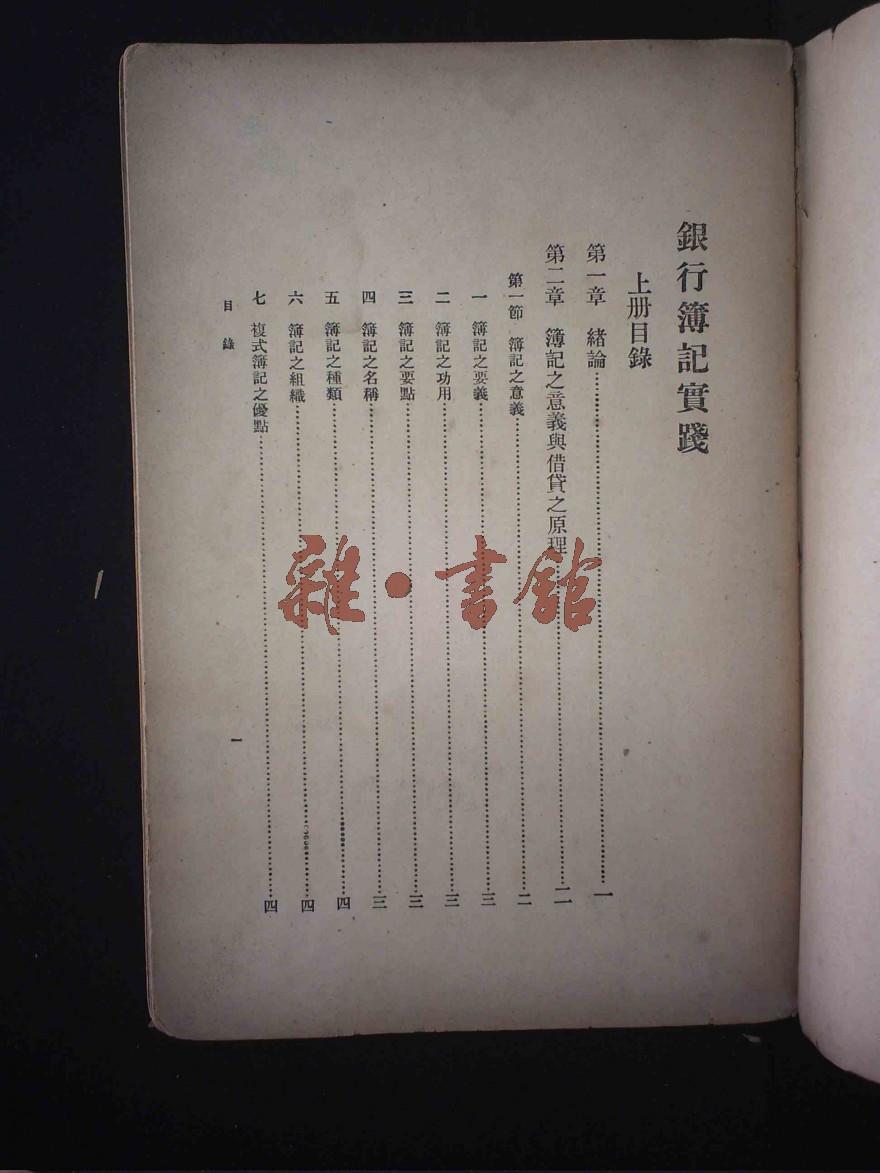 銀行簿記實踐
上册目錄
第一章　緒論……一
第二章　簿記之意義與借貸之原理……二
第一節　簿記之意義……二
一　簿記之要義……三
二　簿記之功用……三
三　簿記之要點……三
四　簿記之名稱……三
五　簿記之種類……四
六　簿記之組織……四
七　複式簿記之優點……四
目錄
一
雜·書館